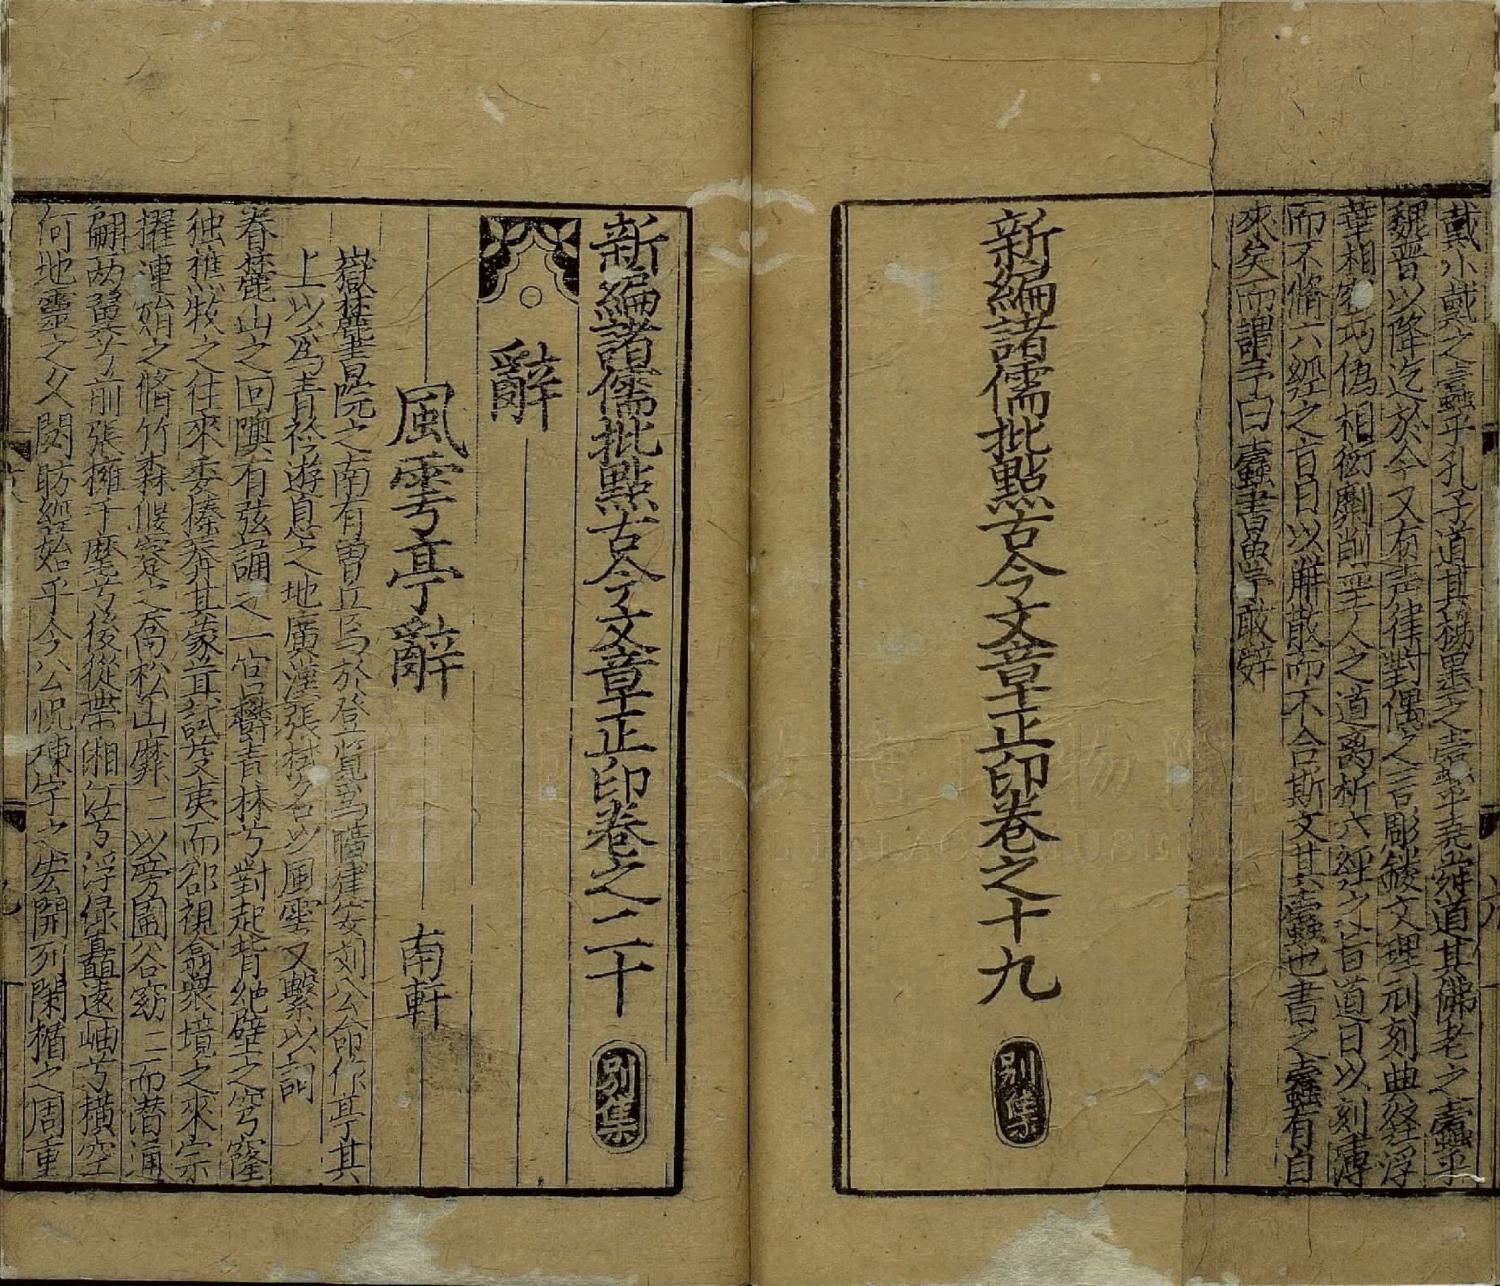 戴小戴之蠹乎孔子道其楊墨之蠹乎堯舜道其佛老之蠹乎
魏晋以降迄於今又有声律對偶之言彫鏤文理刓刻典經浮
華相宻巧偽相衒劘削聖人之道离析六經之旨道日以刻薄
而不脩六經之旨日以離散而不合斯文其蠹也書之蠹有自
來矣而謂予曰蠹書魚乎敢辤
新編諸儒批點古今文章正印卷之十九 別集
新編諸儒批點古今文章正印卷之二十 別集
辭
風雩亭辭 南軒
嶽麓書院之南有曽丘焉於登覧爲曠建安刘公命作亭其
上以爲青衿遊息之地廣漢張栻名以風雩又繫以詞
眷麓山之回隩有弦誦之一宮欝青林兮對起背絶壁之穹窿
独樵牧之往來委榛莽其蒙茸試芟夷而郤視翕衆境之來宗
擢連娟之脩竹森偃蹇之喬松山靡〻以旁圍谷窈〻而潜通
翩两翼兮前張擁千麾兮後從帶湘江兮浮绿矗遠岫兮横空
何地靈之久閟昉經始乎今公怳棟宇之宏開列闌楯之周重